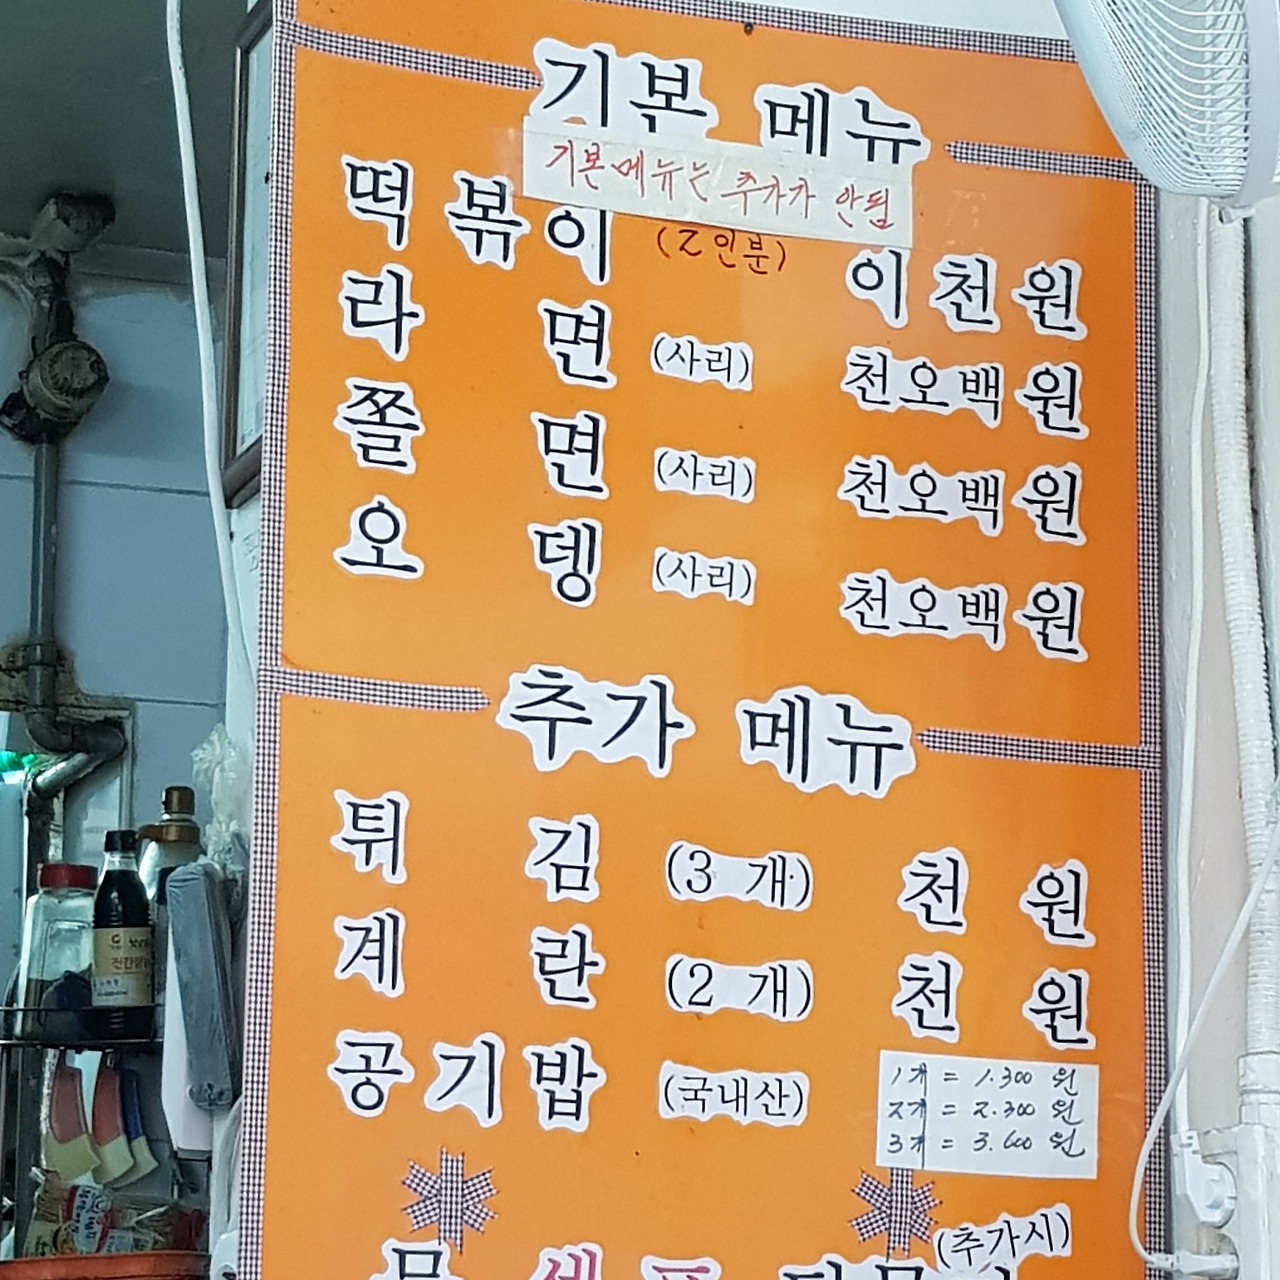 기본 메뉴
기본메뉴는 추가가 안됨
떡볶이 (2인분) 이천원
라면 (사리) 천오백원
쫄면 (사리) 천오백원
오뎅 (사리) 천오백원
추가 메뉴
튀김 (3 개) 천원
계란 (2 개) 천원
공기밥 (국내산)
1개 = 1.300 원
2개 = 2.300 원
3개 = 3.600 원
(추가시)